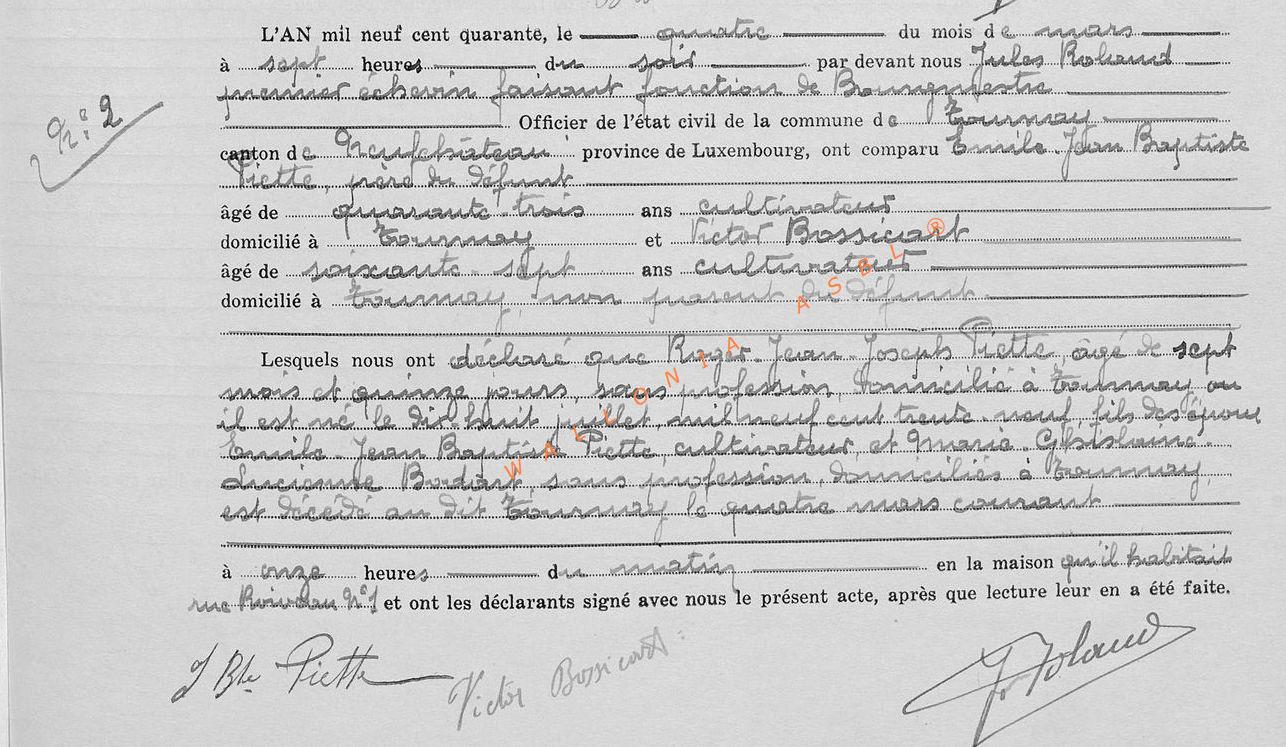 L'AN mil neuf cent quarante, le quatre du mois de mars
à sept heures du soir par devant nous Jules Roland
premier échevin faisant fonction de Bourgmestre
N° 2
Officier de l'état civil de la commune de Tournay
canton de Neufchâteau province de Luxembourg, ont comparu Emile Jean Baptiste
Piette, père du défunt
âgé de quarante trois ans cultivateur
domicilié à Tournay et Victor Bossicart
âgé de soixante sept ans cultivateur
domicilié à Tournay, non parent du défunt
Lesquels nous ont déclaré que Roger Jean Joseph Piette, âgé de sept
mois et quinze jours, sans profession, domicilié à Tournay où
il est né le dix-huit juillet mil neuf cent trente-neuf, fils des époux
Emile Jean Baptiste Piette, cultivateur, et Marie Ghislaine
Lucienne Bodart, sans profession, domiciliés à Tournay,
est décédé au dit Tournay le quatre mars courant
à onze heures du matin en la maison qu'il habitait
rue N° 1 et ont les déclarants signé avec nous le présent acte, après que lecture leur en a été faite.
J Bte Piette Victor Bossicart J Roland
WALLONIA ASBL ®